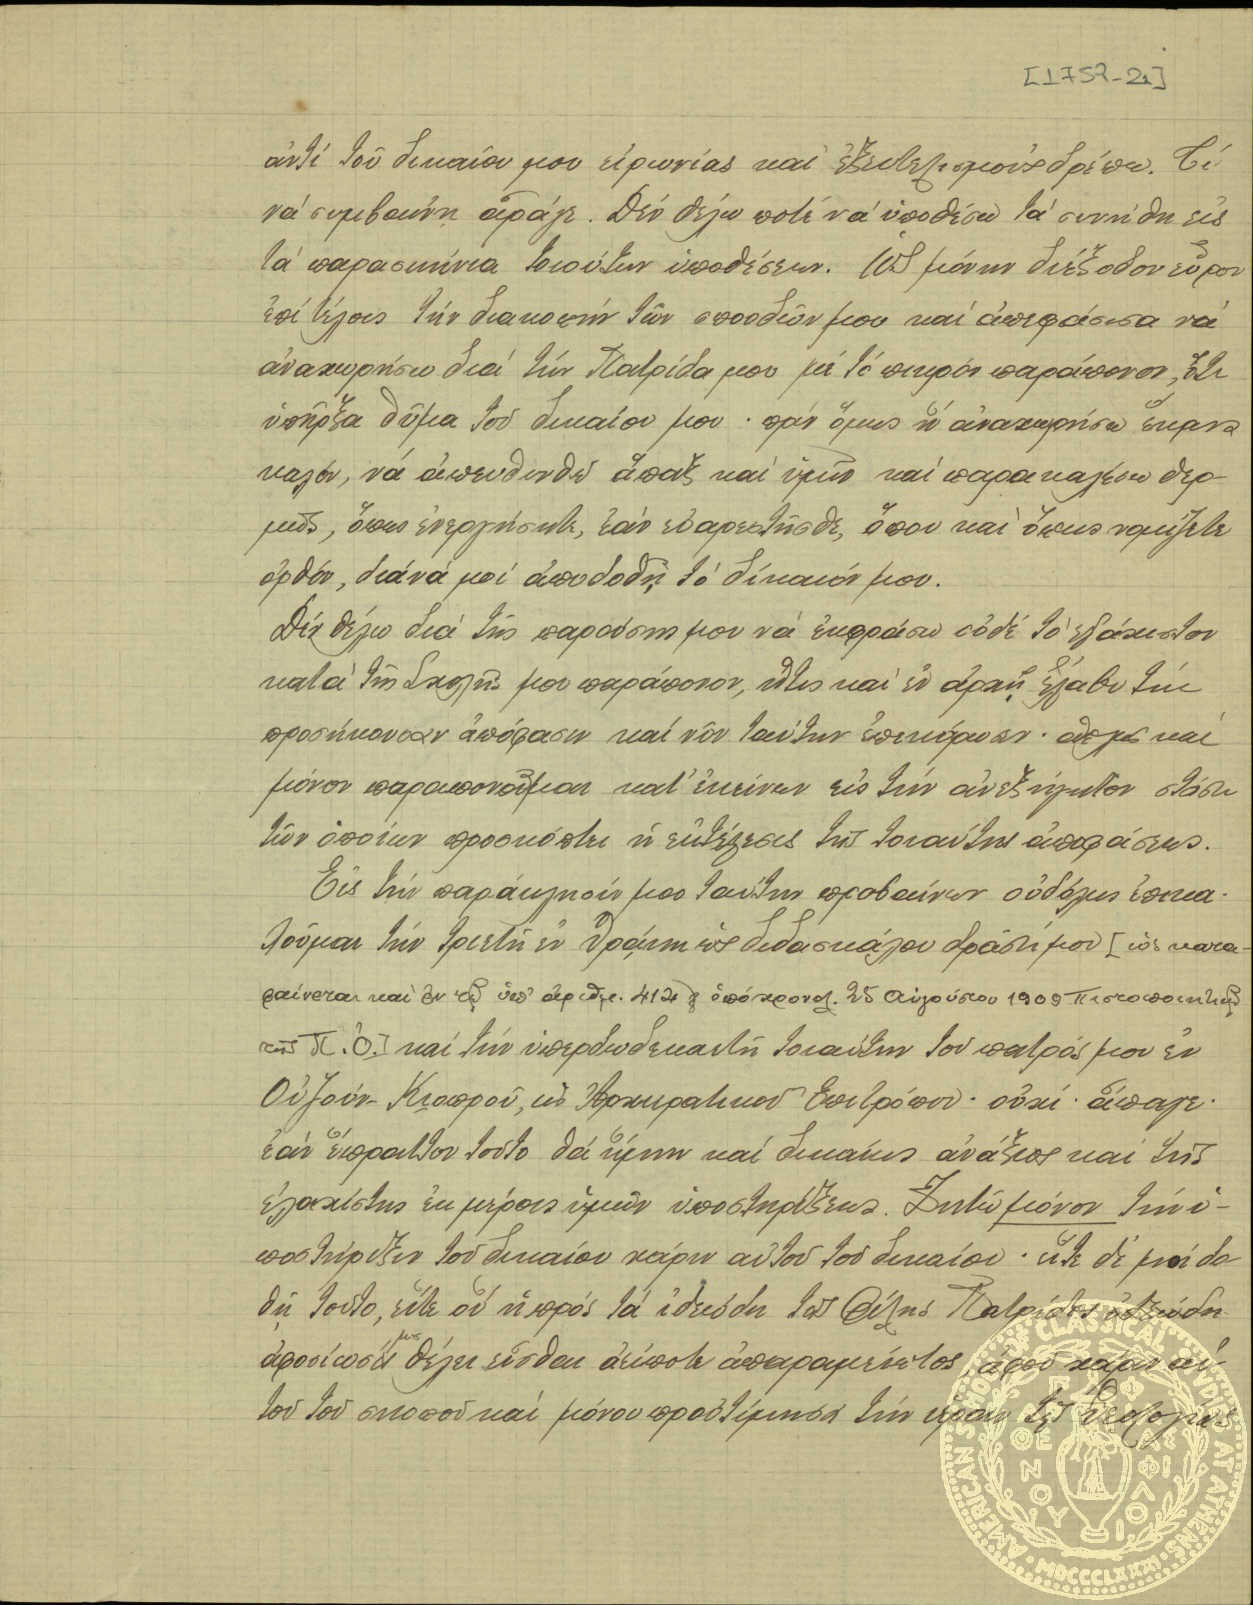 [1757-2]
ἀντὶ τοῦ δικαίου μου εἰρωνίας καὶ ἐξευτελισμοὺς δρέπω. Τί
νὰ συμβαίνῃ ἆράγε. Δὲν θέλω ποτὲ νὰ ὑποθέσω τὰ συνήθη εἰς
τὰ παρασκήνια τοιούτων ὑποθέσεων. Ὡς μόνην διέξοδον εὗρον
ἐπὶ τέλους τὴν διακοπὴν τῶν σπουδῶν μου καὶ ἀπεφάσισα νὰ
ἀναχωρήσω διὰ τὴν Πατρίδα μου μὲ τὸ πικρὸν παράπονον, ὅτι
ὑπῆρξα θῦμα τοῦ δικαίου μου· πρὶν ὅμως ἢ ἀναχωρήσω ἔκρινα
καλόν, νὰ ἀπευθυνθῶ ἅπαξ καὶ ὑμῖν καὶ παρακαλέσω θερ-
μῶς, ὅπως ἐνεργήσητε, ἐὰν εὐαρεστῆσθε, ὅπου καὶ ὅπως νομίζετε
ὀρθόν, διὰ νὰ μοὶ ἀποδοθῇ τὸ δίκαιόν μου.
Δὲν θέλω διὰ τῆς παρούσης μου νὰ ἐκφράσω οὐδὲ τὸ ἐλάχιστον
κατὰ τῆς Σχολῆς μου παράπονον, ἥτις καὶ ἐν ἀρχῇ ἔλαβε τὴν
προσήκουσαν ἀπόφασιν καὶ νῦν ταύτην ἐπεκύρωσεν· ἁπλῶς καὶ
μόνον παραπονοῦμαι κατ' ἐκείνων εἰς τὴν ἀνεξήγητον στάσιν
τῶν ὁποίων προσκόπτει ἡ ἐκτέλεσις τῆς τοιαύτης ἀποφάσεως.
Εἰς τὴν παράκλησίν μου ταύτην προβαίνων οὐδόλως ἐπικα-
λοῦμαι τὴν τριετῆ ἐν Θρᾴκῃ ὡς διδασκάλου δρᾶσίν μου [ὡς κατα-
φαίνεται καὶ ἐν τῷ ὑπ' ἀριθμ. 412 ὑπὸ χρονολ. 25 Αὐγούστου 1909 Πιστοποιητικῷ
τῆς Π.Ο.] καὶ τὴν ὑπερδωδεκαετῆ τοιαύτην τοῦ πατρός μου ἐν
Οὐζοὺν-Κιοπροῦ, ὡς Ἀρχιερατικοῦ Ἐπιτρόπου· οὐχί· ἄπαγε·
ἐὰν ἔπραττον τοῦτο θὰ ἤμην καὶ δικαίως ἀνάξιος καὶ τῆς
ἐλαχίστης ἐκ μέρους ὑμῶν ὑποστηρίξεως. Ζητῶ μόνον τὴν ὑ-
ποστήριξιν τοῦ δικαίου χάριν αὐτοῦ τοῦ δικαίου· εἴτε δὲ μοὶ δο-
θῇ τοῦτο, εἴτε οὔ ἡ πρὸς τὰ ἰδεώδη τῆς Φίλης Πατρίδος
ἀφοσίωσίς μου θέλει εἶσθαι ἀείποτε ἀπαραμείωτος, ἀφοῦ χάριν αὐ-
τοῦ τοῦ σκοποῦ καὶ μόνου προὐτίμησα τὴν τῆς Θεολογίας
AMERICAN SCHOOL OF CLASSICAL STUDIES AT ATHENS · MDCCCLXXXI ·